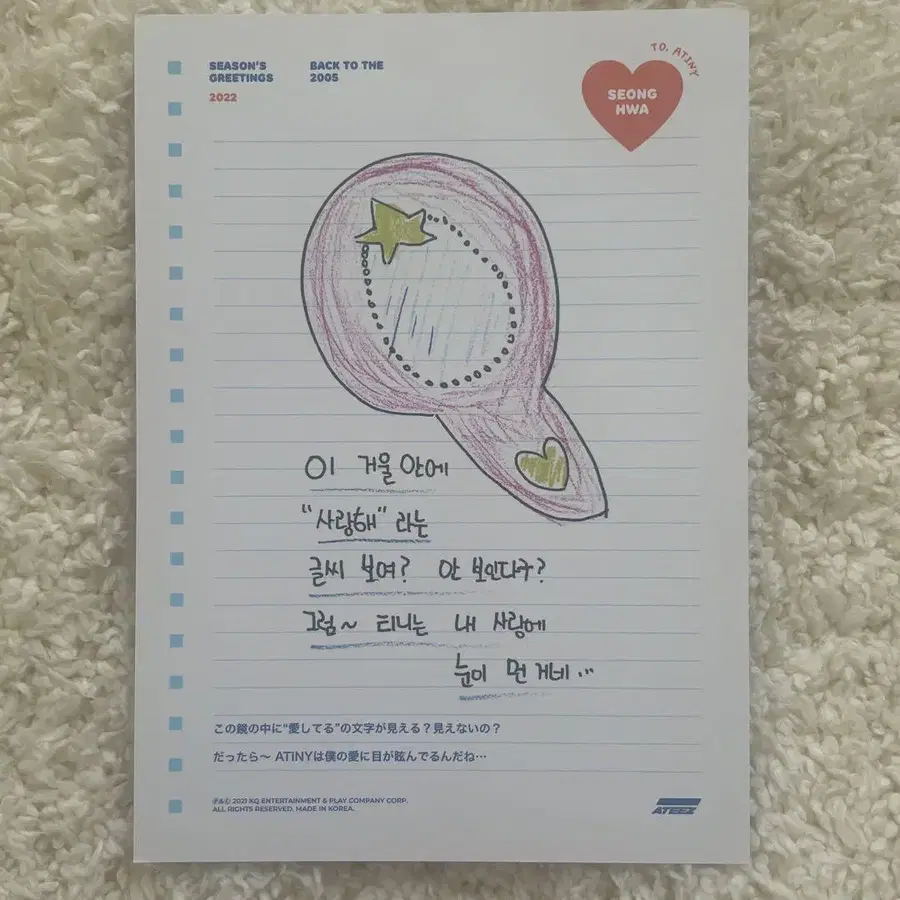 SEASON'S
GREETINGS
2022
BACK TO THE
2005
TO. ATINY
SEONG
HWA
이 거울 안에
"사랑해" 라는
글씨 보여? 안 보인다구?
그럼~ 티니는 내 사랑에
눈이 먼 거네...
この鏡の中に"愛してる"の文字が見える？見えないの？
だったら〜 ATINYは僕の愛に目が眩んでるんだね…
℗&© 2021 KQ ENTERTAINMENT & PLAY COMPANY CORP.
ALL RIGHTS RESERVED. MADE IN KOREA.
ATEEZ